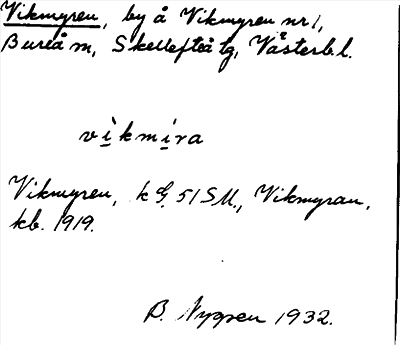 Vikmyren, by å Vikmyren nr 1,
Bureå m, Skellefteå tg, Västerb. l.
vìkmira
Vikmyren, k G. 51 SU., Vikmyran,
kb. 1919.
B. Nygren 1932.